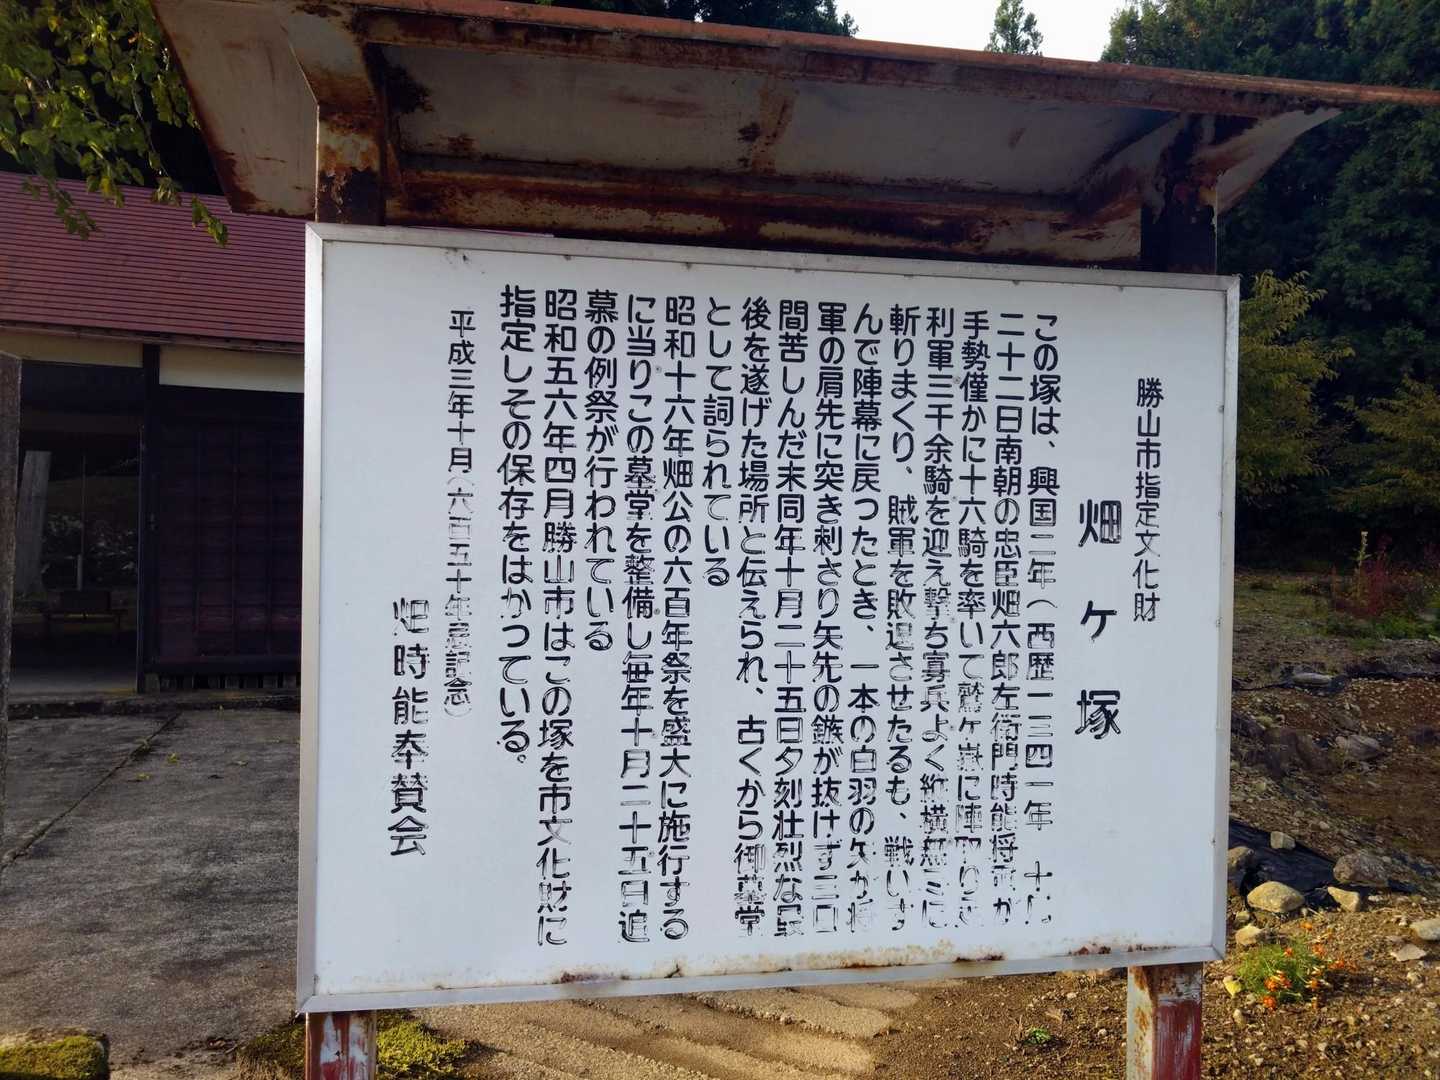 勝山市指定文化財
畑ヶ塚
この塚は、興国二年(西歴一三四一年 十月
二十二日南朝の忠臣畑六郎左衛門時能将軍が
手勢僅かに十六騎を率いて鷲ヶ嶽に陣取り
利軍三千余騎を迎え撃ち寡兵よく縦横無尽に
斬りまくり、賊軍を敗退させたるも、戦いす
んで陣幕に戻ったとき、一本の白羽の矢が将
軍の肩先に突き刺さり矢先の鏃が抜けず三日
間苦しんだ末同年十月二十五日夕刻壮烈な最
後を遂げた場所と伝えられ、古くから御墓堂
として詞られている
昭和十六年畑公の六百年祭を盛大に施行する
に当りこの墓堂を整備し毎年十月二十五日追
慕の例祭が行われている
昭和五六年四月勝山市はこの塚を市文化財に
指定しその保存をはかっている。
平成三年十月(六百五十年記念)
畑時能奉賛会